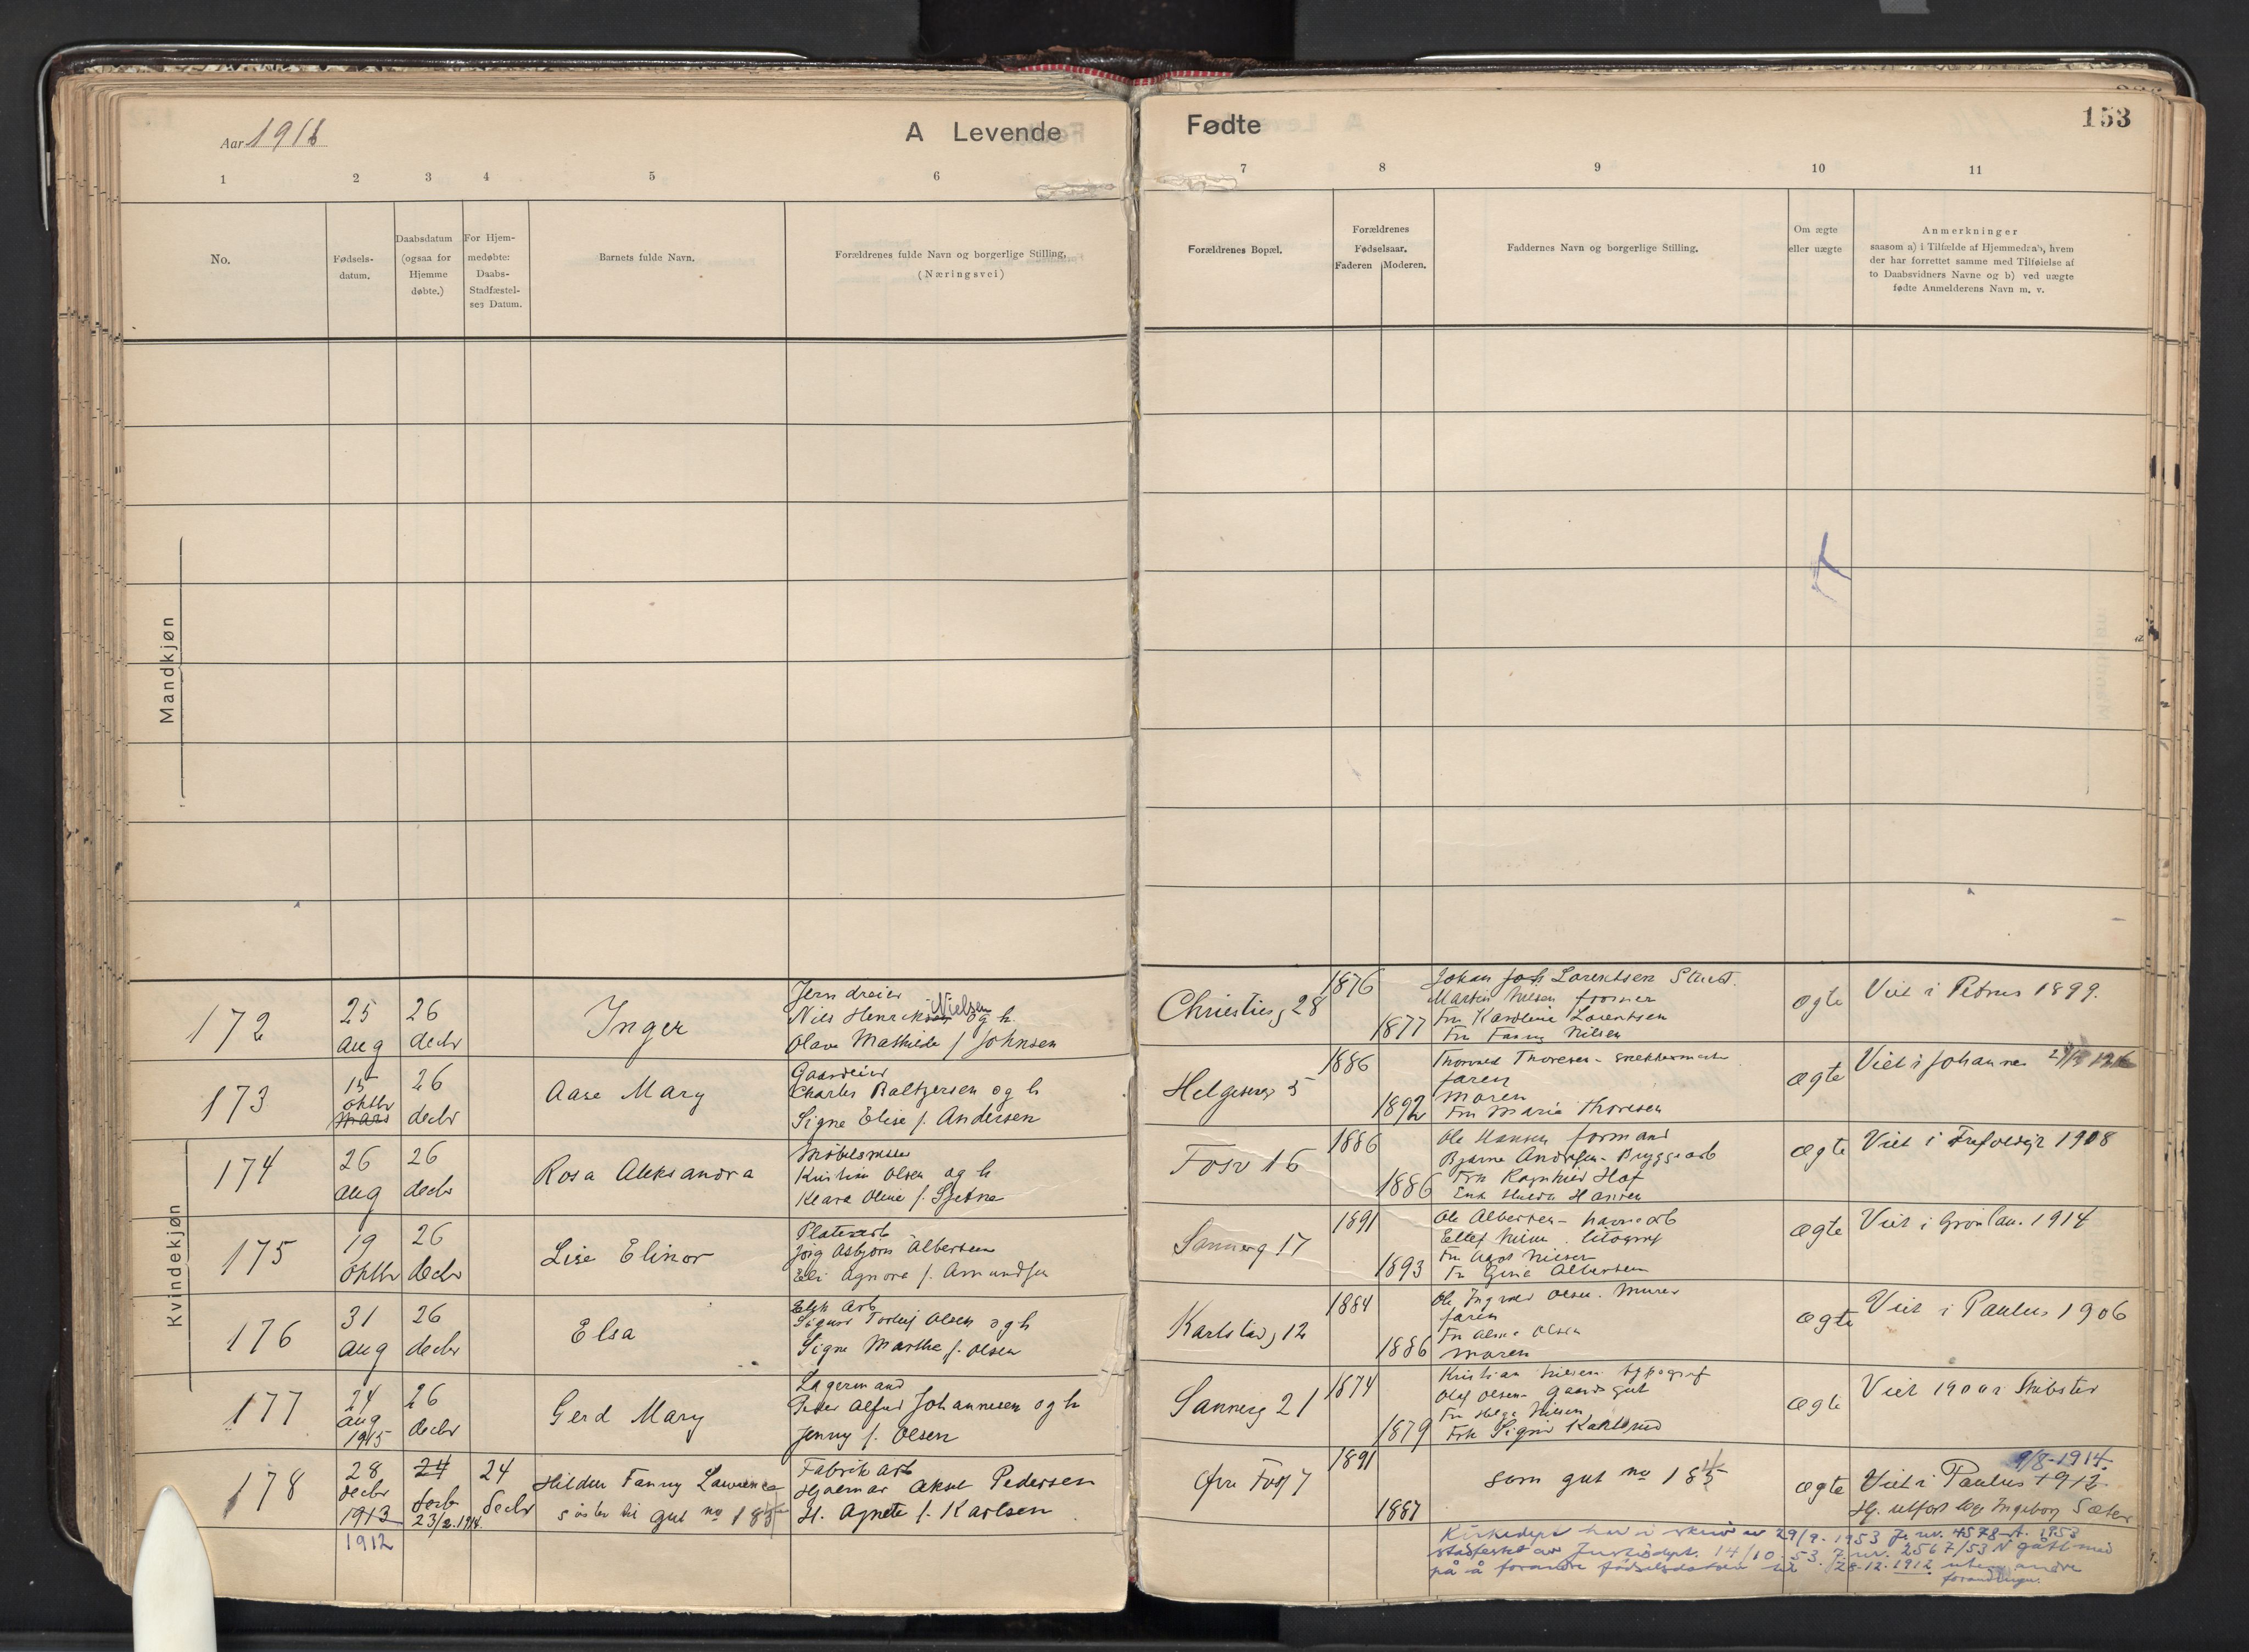 Aar 1916
A Levende
Fødte
153
1 2 3 4 5 6 7 8 9 10 11
No.
Fødsels-
datum.
Daabsdatum
(ogsaa for
Hjemme
døbte.)
For Hjem-
medøbte:
Daabs-
Stadfæstel-
ses Datum.
Barnets fulde Navn.
Forældrenes fulde Navn og borgerlige Stilling.
(Næringsvei)
Forældrenes Bopæl.
Forældrenes
Fødselsaar.
Faderen Moderen.
Faddernes Navn og borgerlige Stilling.
Om ægte
eller uægte
Anmerkninger
saasom a) i Tilfælde af Hjemmedaab, hvem
der har forrettet samme med Tilføielse af
to Daabsvidners Navne og b) ved uægte
fødte Anmelderens Navn m. v.
Mandkjøn
Kvindekjøn
172
25
aug
26
decbr
Inger
Jerndreier
Nils Henriksen Nielsen og h.
Olava Mathilde f. Johnsen
Christiesg 28
1876
1877
Johan Joh Lorentsen
Martin Nilsen former
Fru Karoline Lorentsen
Fru Fanny Nilsen
ægte
Viet i Petrus 1899.
173
15
oktbr
mars
26
decbr
Aase Mary
Gaardeier
Charles Baltzersen og h
Signe Elise f. Andersen
Helgesensg 5
1886
1892
Thorvald Thoresen - snekkermester
faren
moren
Fru Marie Thoresen
ægte
Viet i Johannes
174
26
aug
26
decbr
Rosa Aleksandra
Kristian Olsen og h
Klara Oline f. Sjetne
Fossv 16
1886
1886
Ole Hansen formand
Bjarne Andersen - Bryggearb
Frk Ragnhild Hof
Enk Hulda Hansen
ægte
Viet i 1908
175
19
oktbr
26
decbr
Lise Elinor
Platearb
Asbjørn Albertsen
Eli Agnora f. Amundsen
Sannerg 17
1891
1893
Ole Albertsen - havnearb
litograf
Fru Gina Albertsen
ægte
Viet i Grønlan. 1914
176
31
aug
26
decbr
Elsa
Elek Arb
Sigurd Torleif Olsen og h
Signe Marthe f. Olsen
Karlstadg 12
1884
1886
Ole Ingvald Olsen. Murer
faren
Fru Alma Olsen
moren
ægte
Viet i Paulus 1906
177
24
aug
1915
26
decbr
Gerd Mary
Lagermand
Peder Alfred Johannesen og h
Jenny f. Olsen
Sannerg 21
1874
1879
Kristian Nilsen typograf
Olaf Olsen - gaardsgut
Fru Helga Nilsen
Frk Signe Karlsrud
ægte
Viet 1900 i
178
28
decbr
1913
1912
24
23/2.1914
24
decbr
Hildur Fanny Lawrence
søster til gut no 185
Fabrik arb
Hjalmar Aksel Pedersen
H. Agnete f. Karlsen
Øvre Fossg 7
1891
1887
som gut no 185
ægte
9/8-1914.
Viet i Paulus 1912
Hj. utført av Ingeborg Sæter
Kirkedept har i skriv av 29/9. 1953 J. nr. 4578 A. 1953
stadfestet av Justisdept. 14/10. 53. J. nr. 2567/53 N gått med
på å forandre fødselsdatoen til 28.12.1912 uten andre
forandringer.